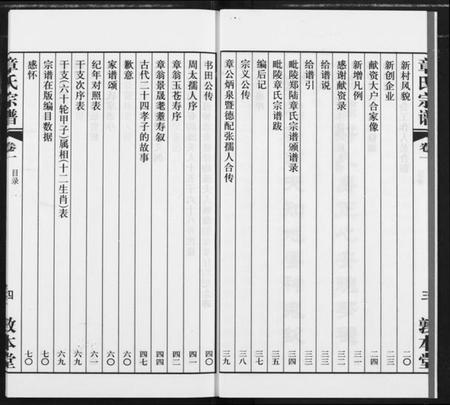 章氏宗谱
卷一
三
敦本堂
新村风貌 二〇
新创企业 二二
献资大户合家像 二四
新增凡例 三一
感谢献资录 三二
给谱说 三三
给谱引 三三
毗陵郑陆章氏宗谱颁谱录 三四
毗陵章氏宗谱跋 三五
编后记 三七
宗义公传 三八
章公炳泉暨德配张孺人合传 三九
书田公传 四〇
周太孺人序 四一
章翁玉苍寿序 四二
章翁景晟耄耋寿叙 四四
古代二十四孝子的故事 四七
歉意 六〇
家谱颂 六〇
纪年对照表 六一
干支次序表 六九
干支(六十轮甲子)属相(十二生肖)表 六九
宗谱在版编目数据 七〇
感怀 七〇
章氏宗谱
卷一
目录
四
敦本堂